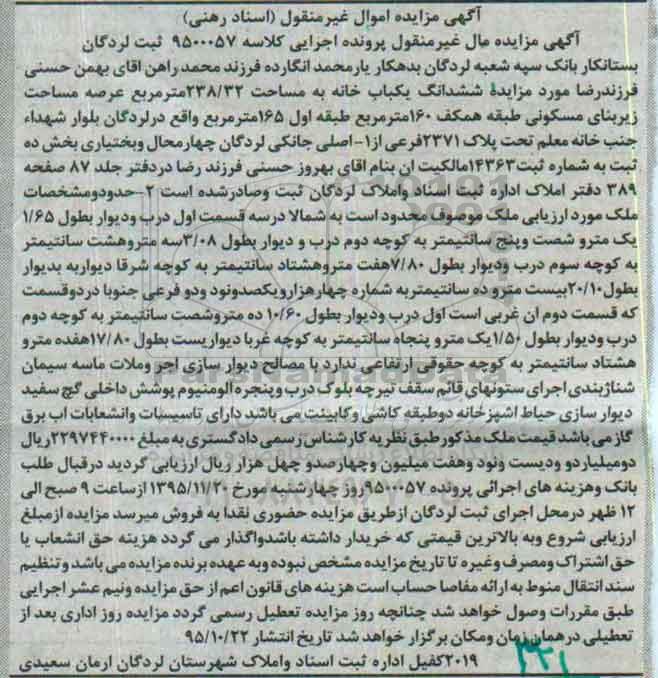 آگهی مزایده اموال غیرمنقول (اسناد رهنی)
آگهی مزایده مال غیرمنقول پرونده اجرایی کلاسه ۹۵۰۰۰۵۷ ثبت لردگان
بستانکار بانک سپه شعبه لردگان بدهکار یارمحمد انگارده فرزند محمد راهن اقای بهمن حسنی
فرزندرضا مورد مزایده ششدانگ یکباب خانه به مساحت ۲۳۸/۳۲مترمربع عرصه مساحت
زیربنای مسکونی طبقه همکف ۱۶۰مترمربع طبقه اول ۱۶۵مترمربع واقع درلردگان بلوار شهداء
جنب خانه معلم تحت پلاک ۲۳۷۱فرعی از۱-اصلی جانکی لردگان چهارمحال وبختیاری بخش ده
ثبت به شماره ثبت۱۴۳۶۳مالکیت ان بنام اقای بهروز حسنی فرزند رضا دردفتر جلد ۸۷ صفحه
۳۸۹ دفتر املاک اداره ثبت اسناد واملاک لردگان ثبت وصادرشده است ۲-حدودومشخصات
ملک مورد ارزیابی ملک موصوف محدود است به شمالا درسه قسمت اول درب ودیوار بطول ۱/۶۵
یک مترو شصت وپنج سانتیمتر به کوچه دوم درب و دیوار بطول ۳/۰۸سه متروهشت سانتیمتر
به کوچه سوم درب ودیوار بطول ۷/۸۰هفت متروهشتاد سانتیمتر به کوچه شرقا دیواربه بدیوار
بطول۲۰/۱۰بیست مترو ده سانتیمتربه شماره چهارهزارویکصدونود ودو فرعی جنوبا دردوقسمت
که قسمت دوم ان غربی است اول درب ودیوار بطول ۱۰/۶۰ ده متروشصت سانتیمتر به کوچه دوم
درب ودیوار بطول ۱/۵۰یک مترو پنجاه سانتیمتر به کوچه غربا دیواریست بطول ۱۷/۸۰هفده مترو
هشتاد سانتیمتر به کوچه حقوقی ارتفاعی ندارد با مصالح دیوار سازی اجر وملات ماسه سیمان
شناژبندی اجرای ستونهای قائم سقف تیرچه بلوک درب وپنجره الومنیوم پوشش داخلی گچ سفید
دیوار سازی حیاط اشپزخانه دوطبقه کاشی وکابینت می باشد دارای تاسیسات وانشعابات اب برق
گاز می باشد قیمت ملک مذکور طبق نظریه کارشناس رسمی دادگستری به مبلغ ۲۲۹۷۴۴۰۰۰۰ریال
دومیلیارد و دویست ونود وهفت میلیون وچهارصدو چهل هزار ریال ارزیابی گردید درقبال طلب
بانک وهزینه های اجرائی پرونده ۹۵۰۰۰۵۷روز چهارشنبه مورخ ۱۳۹۵/۱۱/۲۰ ازساعت ۹ صبح الی
۱۲ ظهر درمحل اجرای ثبت لردگان ازطریق مزایده حضوری نقدا به فروش میرسد مزایده ازمبلغ
ارزیابی شروع وبه بالاترین قیمتی که خریدار داشته باشدواگذار می گردد هزینه حق انشعاب یا
حق اشتراک ومصرف وغیره تا تاریخ مزایده مشخص نبوده وبه عهده برنده مزایده می باشد وتنظیم
سند انتقال منوط به ارائه مفاصا حساب است هزینه های قانون اعم از حق مزایده ونیم عشر اجرایی
طبق مقررات وصول خواهد شد چنانچه روز مزایده تعطیل رسمی گردد مزایده روز اداری بعد از
تعطیلی درهمان زمان ومکان برگزار خواهد شد تاریخ انتشار ۹۵/۱۰/۲۲
۲۰۱۹کفیل اداره ثبت اسناد واملاک شهرستان لردگان ارمان سعیدی
۳۲۱